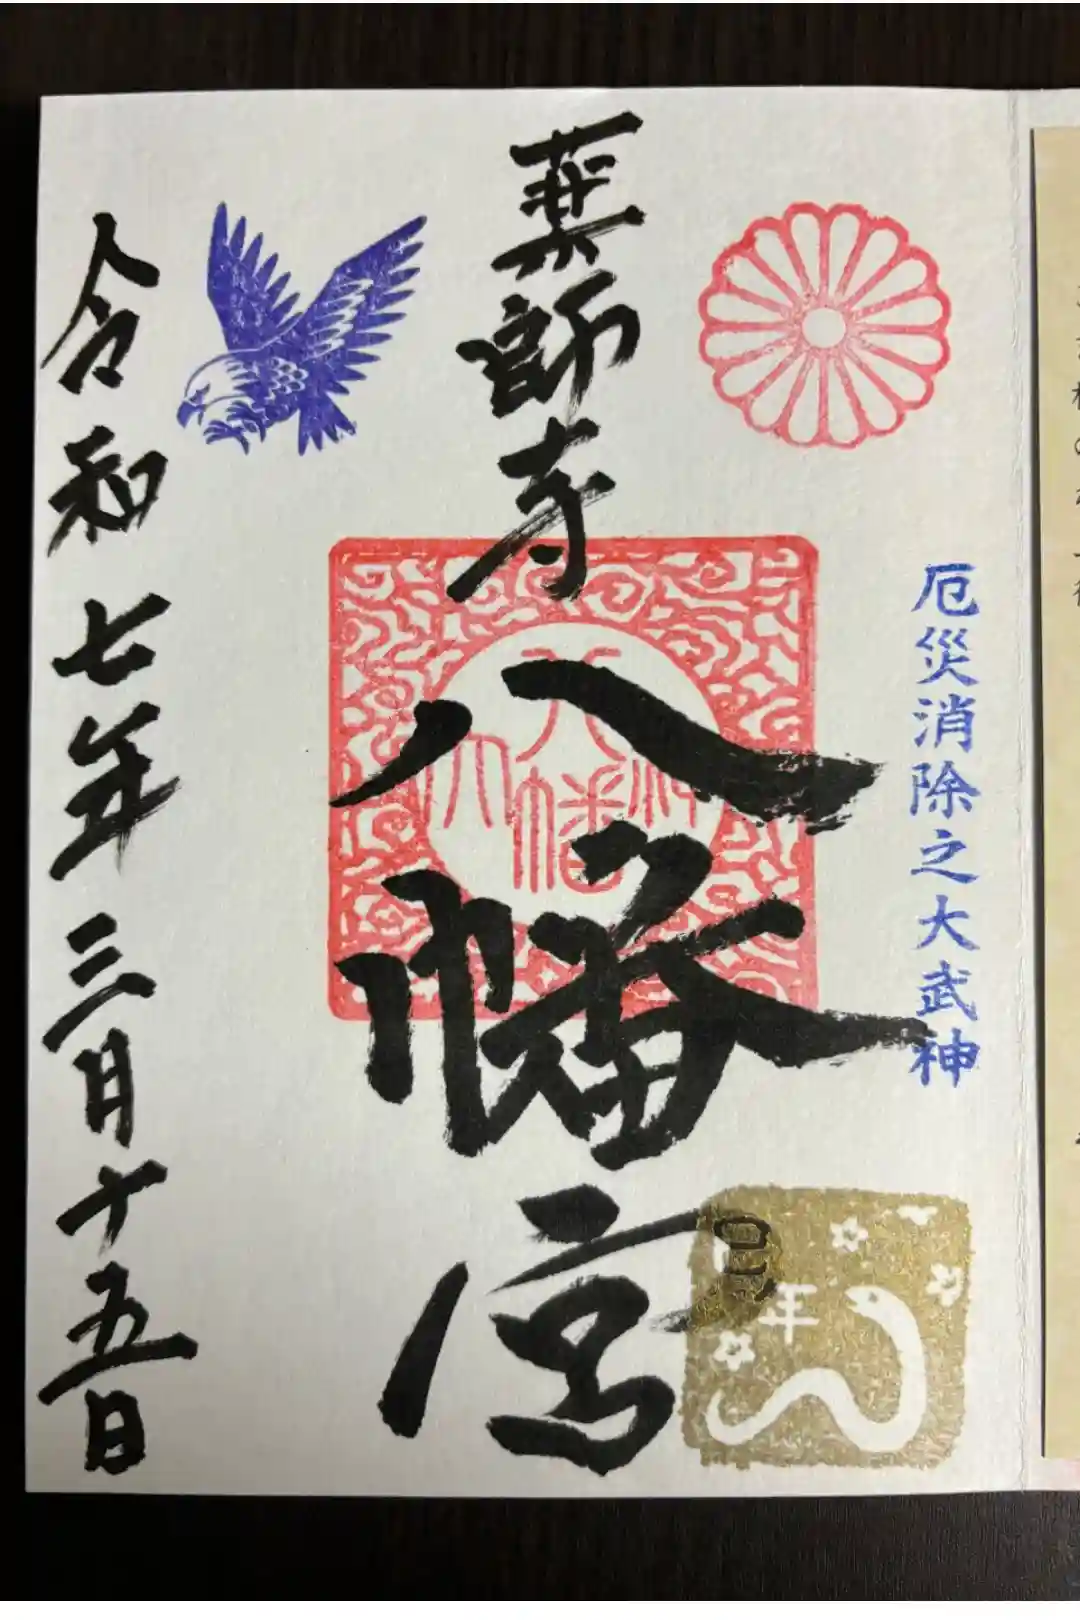 厄災消除之大武神
薬師寺
八幡宮
八幡
大神
巳年
令和七年三月十五日